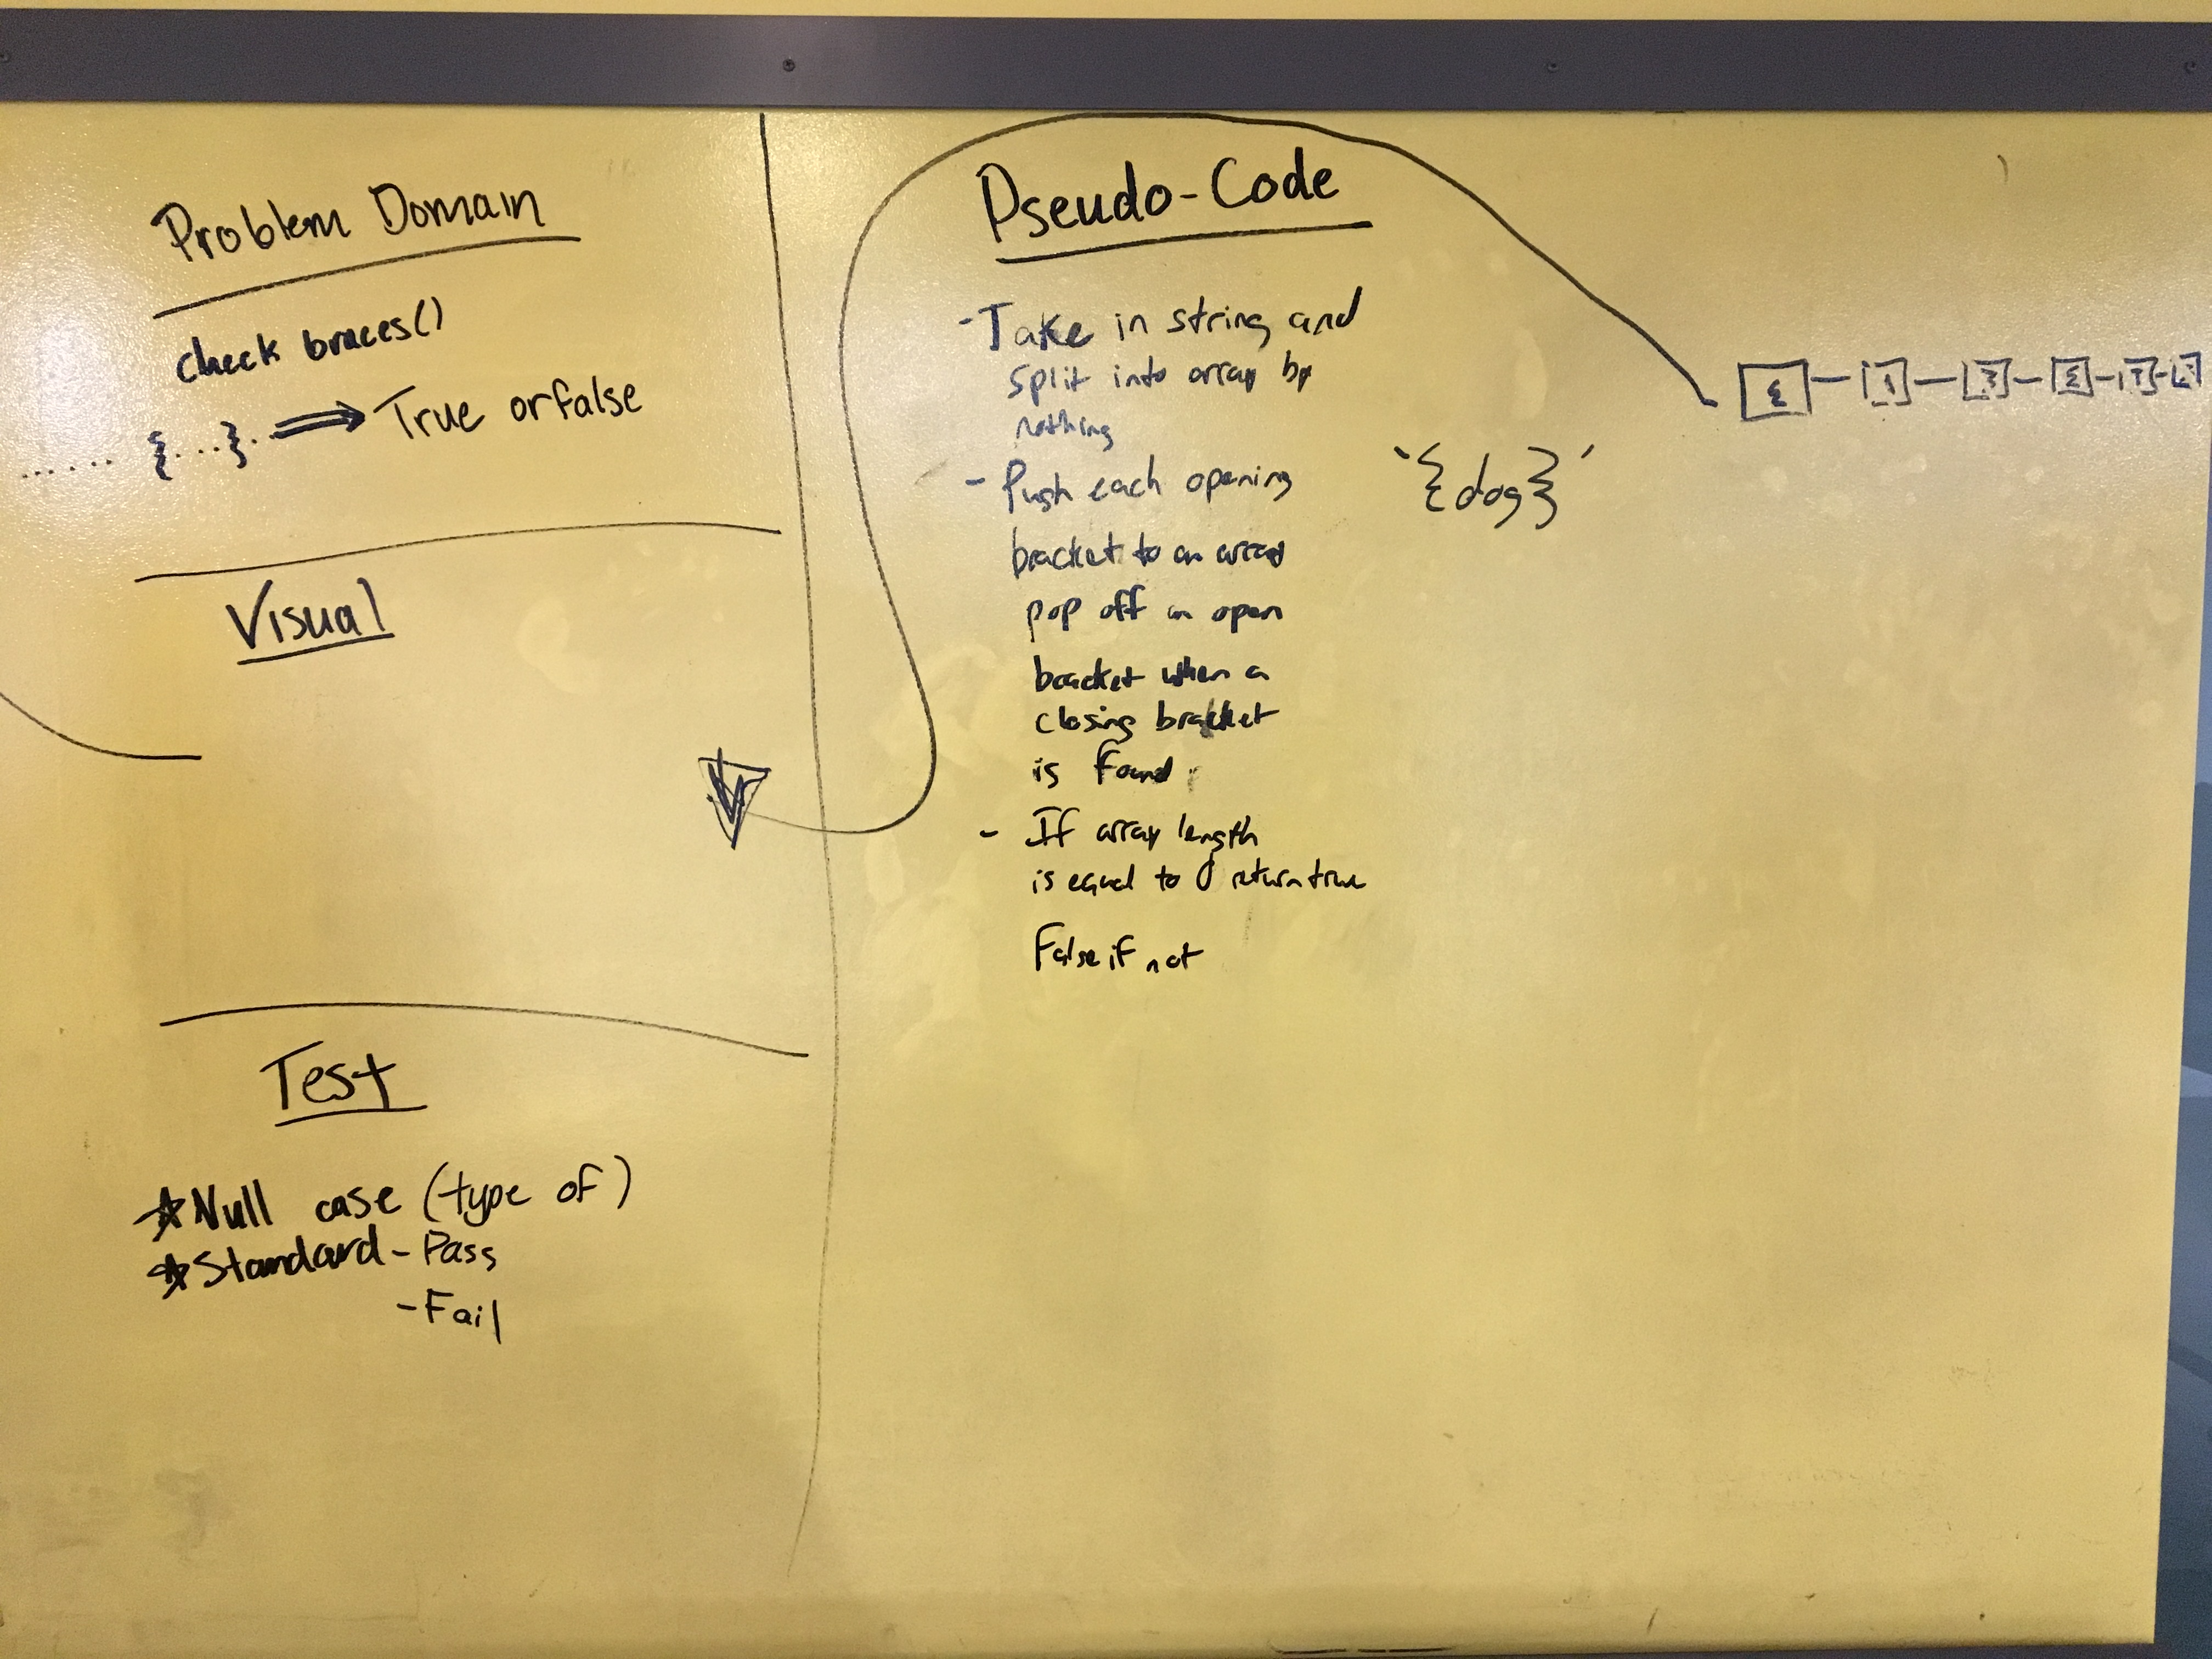 Problem Domain
check braces()
...... {....}.. ⟹ True or false
Visual
Test
★Null case (type of)
★Standard - Pass
- Fail
Pseudo-Code
- Take in string and
split into array by
nothing
- Push each opening
bracket to an array
pop off an open
bracket when a
closing bracket
is found
- If array length
is equal to 0 return true
False if not
'{dog}'